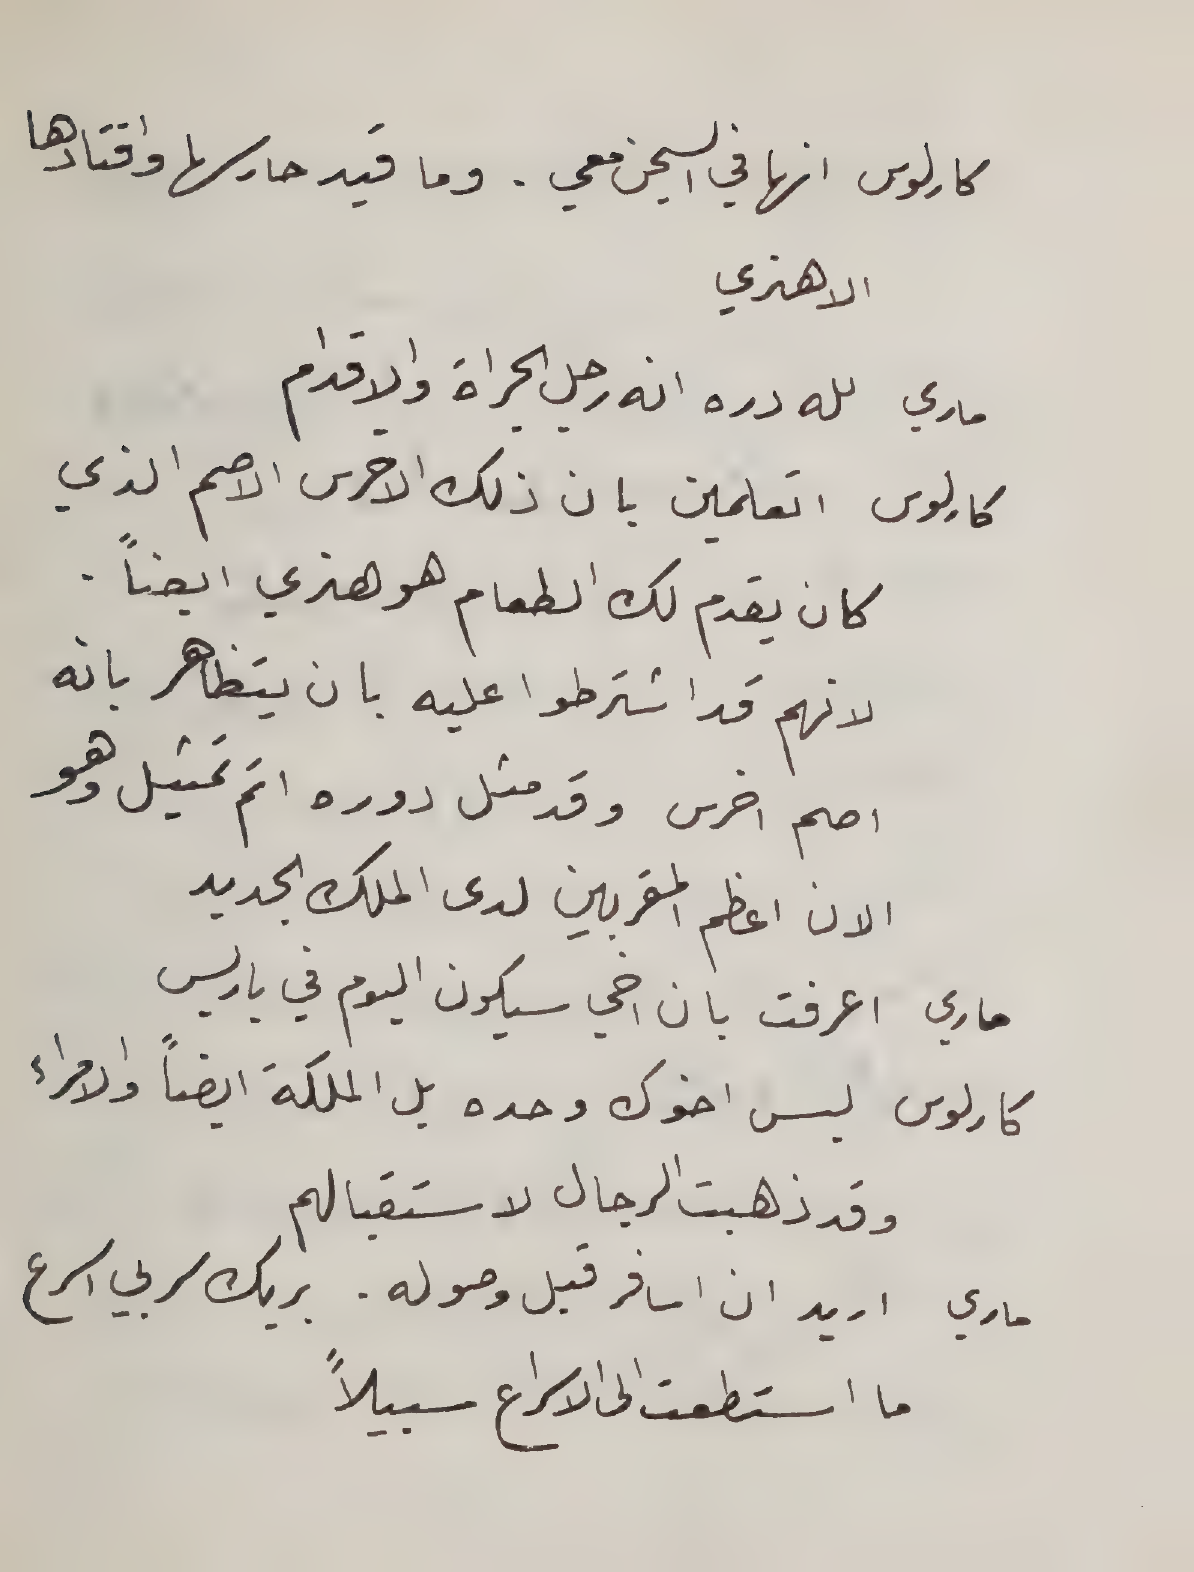 كارلوس انها في السجن معي . وما قيد حارسها واقتادها
الا هنري
ماري لله دره انه رجل الجراة والاقدام
كارلوس اتعلمين بان ذلك الاخرس الاصم الذي
كان يقدم لك الطعام هو هنري ايضاً .
لانهم قد اشترطوا عليه بان يتظاهر بانه
اصم اخرس وقد مثل دوره اتم تمثيل وهو
الان اعظم المقربين لدى الملك الجديد
ماري اعرفت بان اخي سيكون اليوم في باريس
كارلوس ليس اخوك وحده بل الملكة ايضاً والامراء
وقد ذهبت الرجال لاستقبالهم
ماري اريد ان اسافر قبل وصوله . بربك سر بي اسرع
ما استطعت الى الاسراع سبيلاً